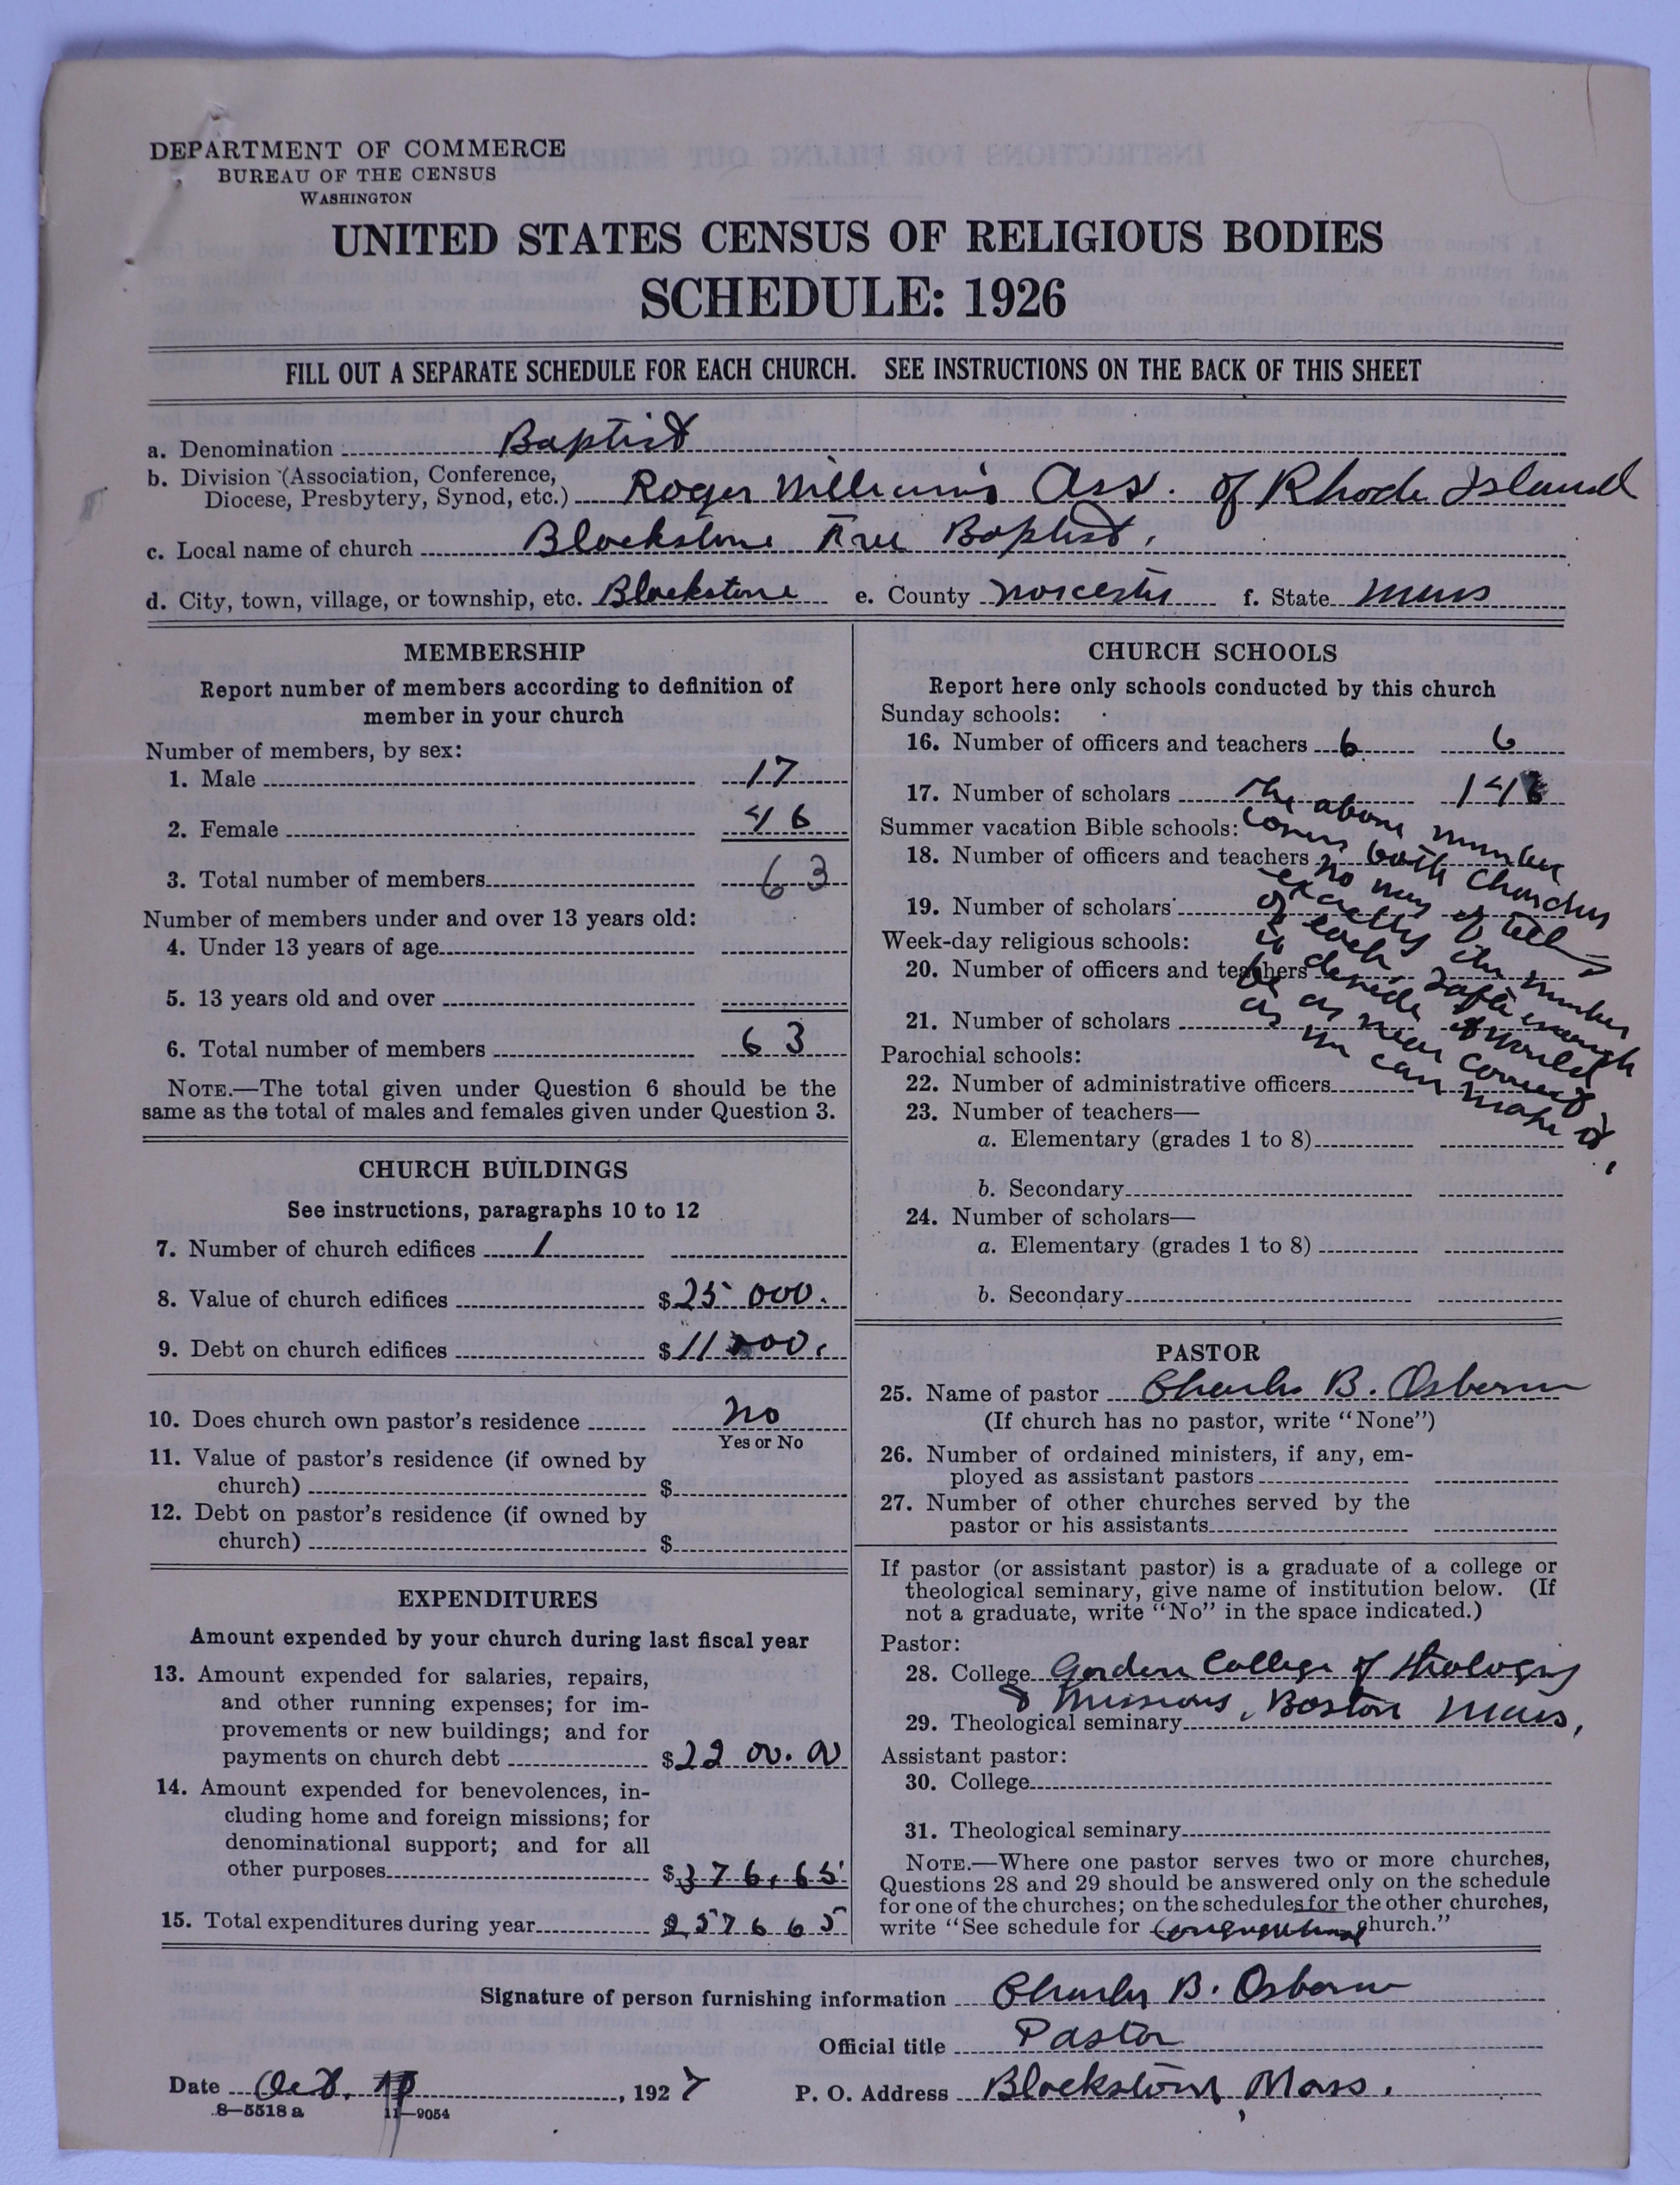 DEPARTMENT OF COMMERCE
BUREAU OF THE CENSUS
WASHINGTON
UNITED STATES CENSUS OF RELIGIOUS BODIES
SCHEDULE: 1926
FILL OUT A SEPARATE SCHEDULE FOR EACH CHURCH. SEE INSTRUCTIONS ON THE BACK OF THIS SHEET
a. Denomination Baptist
b. Division (Association, Conference,
Diocese, Presbytery, Synod, etc.) Roger Williams Ass. of Rhode Island
c. Local name of church Blackstone Free Baptist.
d. City, town, village, or township, etc. Blackstone e. County Worcester f. State Mass
MEMBERSHIP
Report number of members according to definition of
member in your church
Number of members, by sex:
1. Male 17
2. Female 46
3. Total number of members 63
Number of members under and over 13 years old:
4. Under 13 years of age
5. 13 years old and over
6. Total number of members 63
NOTE.—The total given under Question 6 should be the
same as the total of males and females given under Question 3.
CHURCH BUILDINGS
See instructions, paragraphs 10 to 12
7. Number of church edifices 1
8. Value of church edifices $25 000.
9. Debt on church edifices $11 000.
10. Does church own pastor's residence No
Yes or No
11. Value of pastor's residence (if owned by
church) $
12. Debt on pastor's residence (if owned by
church) $
EXPENDITURES
Amount expended by your church during last fiscal year
13. Amount expended for salaries, repairs,
and other running expenses; for im-
provements or new buildings; and for
payments on church debt $22 00.00
14. Amount expended for benevolences, in-
cluding home and foreign missions; for
denominational support; and for all
other purposes $376.65
15. Total expenditures during year 2576 65
CHURCH SCHOOLS
Report here only schools conducted by this church
Sunday schools:
16. Number of officers and teachers 6 6
17. Number of scholars 14
Summer vacation Bible schools:
18. Number of officers and teachers
19. Number of scholars
Week-day religious schools:
20. Number of officers and teachers
21. Number of scholars
Parochial schools:
22. Number of administrative officers
23. Number of teachers—
a. Elementary (grades 1 to 8)
b. Secondary
24. Number of scholars—
a. Elementary (grades 1 to 8)
b. Secondary
The above number
covers both Churches
no way of telling
exactly the number
of each. Safe enough
to devide it would
be as near correct
as we can make it.
PASTOR
25. Name of pastor Charles B. Osborn
(If church has no pastor, write "None")
26. Number of ordained ministers, if any, em-
ployed as assistant pastors
27. Number of other churches served by the
pastor or his assistants
If pastor (or assistant pastor) is a graduate of a college or
theological seminary, give name of institution below. (If
not a graduate, write "No" in the space indicated.)
Pastor:
28. College Gordon College of Theology
& Missions, Boston Mass,
29. Theological seminary
Assistant pastor:
30. College
31. Theological seminary
NOTE.—Where one pastor serves two or more churches,
Questions 28 and 29 should be answered only on the schedule
for one of the churches; on the schedules for the other churches,
write "See schedule for Congregational church."
Signature of person furnishing information Charles B. Osborn
Official title Pastor
Date Oct. , 1927 P. O. Address Blackstone, Mass.
8—5518 a 11—9054